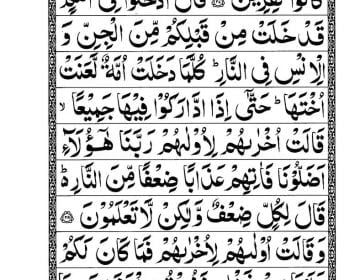 كَانُوۡا كٰفِرِيۡنَ ﴿۳۷﴾ قَالَ ادۡخُلُوۡا فِىۡۤ اُمَمٍ
قَدۡ خَلَتۡ مِنۡ قَبۡلِكُمۡ مِّنَ الۡجِنِّ وَ
الۡاِنۡسِ فِى النَّارِ ؕ كُلَّمَا دَخَلَتۡ اُمَّةٌ لَّعَنَتۡ
اُخۡتَهَا ؕ حَتّٰۤى اِذَا ادَّارَكُوۡا فِيۡهَا جَمِيۡعًا ۙ
قَالَتۡ اُخۡرٰٮهُمۡ لِاُوۡلٰٮهُمۡ رَبَّنَا هٰۤؤُلَۤاءِ
اَضَلُّوۡنَا فَاٰتِهِمۡ عَذَابًا ضِعۡفًا مِّنَ النَّارِ ؕ
قَالَ لِكُلٍّ ضِعۡفٌ وَّلٰكِنۡ لَّا تَعۡلَمُوۡنَ ﴿۳۸﴾
وَقَالَتۡ اُوۡلٰٮهُمۡ لِاُخۡرٰٮهُمۡ فَمَا كَانَ لَكُمۡ